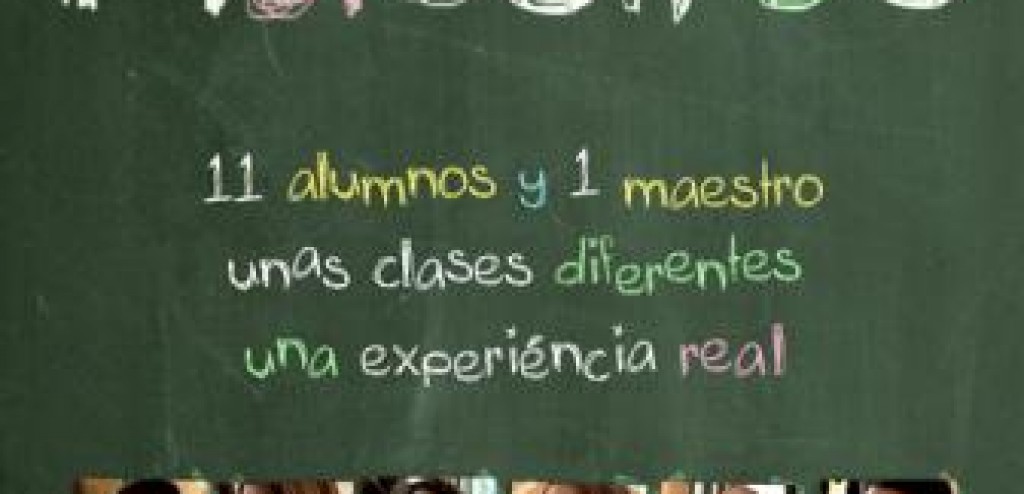 11 alumnos y 1 maestro
unas clases diferentes
una experiéncia real